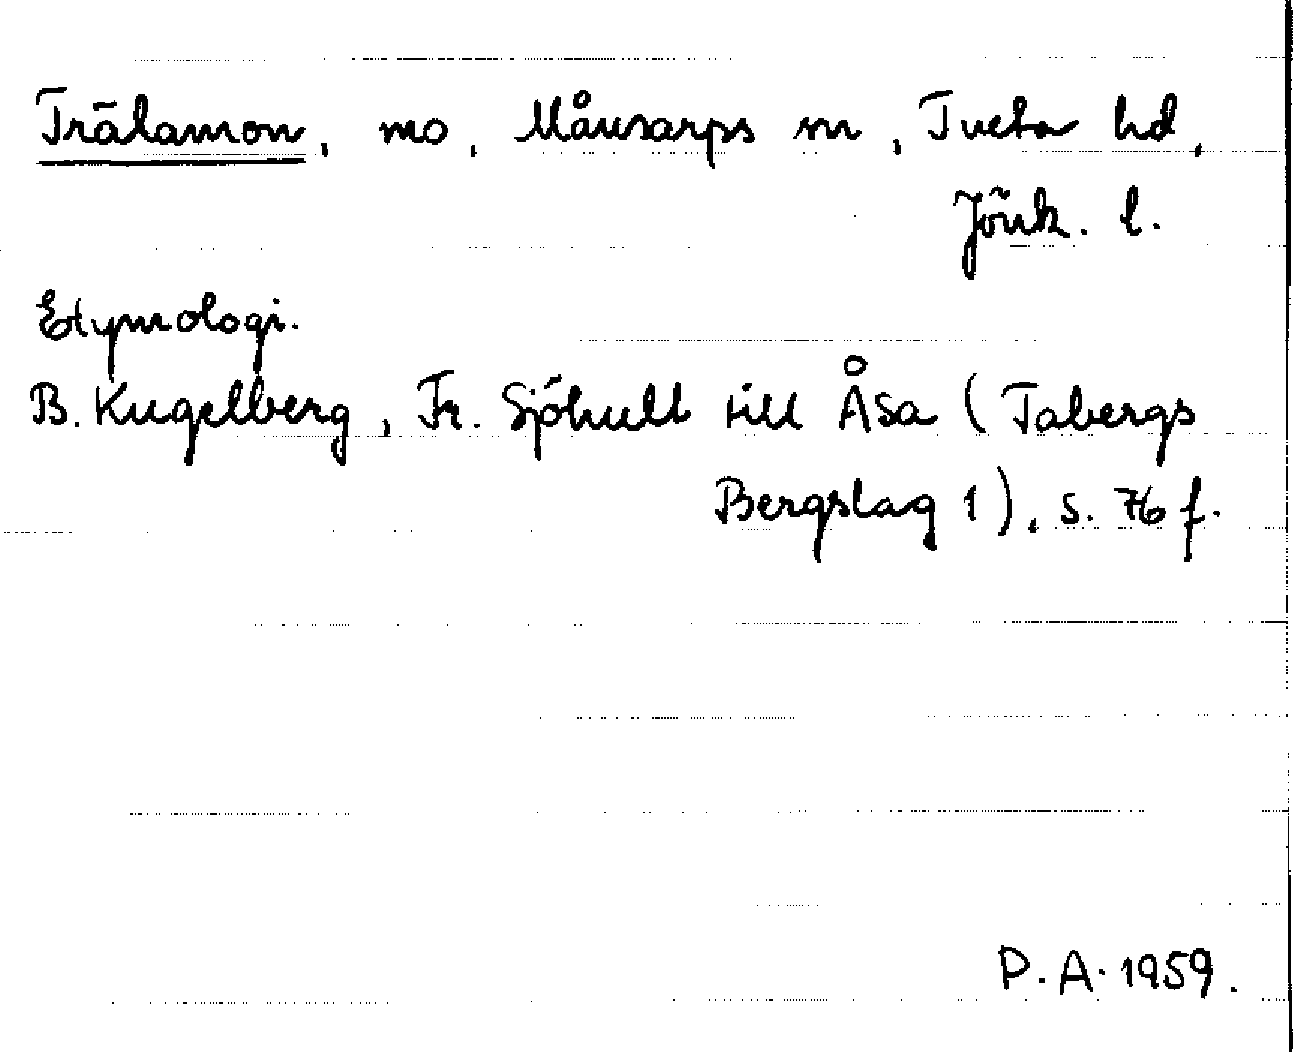 Trälamon, mo, Månsarps sn, Tveta hd,
Jönk. l.
Etymologi.
B. Kugelberg, Fr. Sjöhult till Åsa (Tabergs
Bergslag 1), s. 76 f.
P.A. 1959.